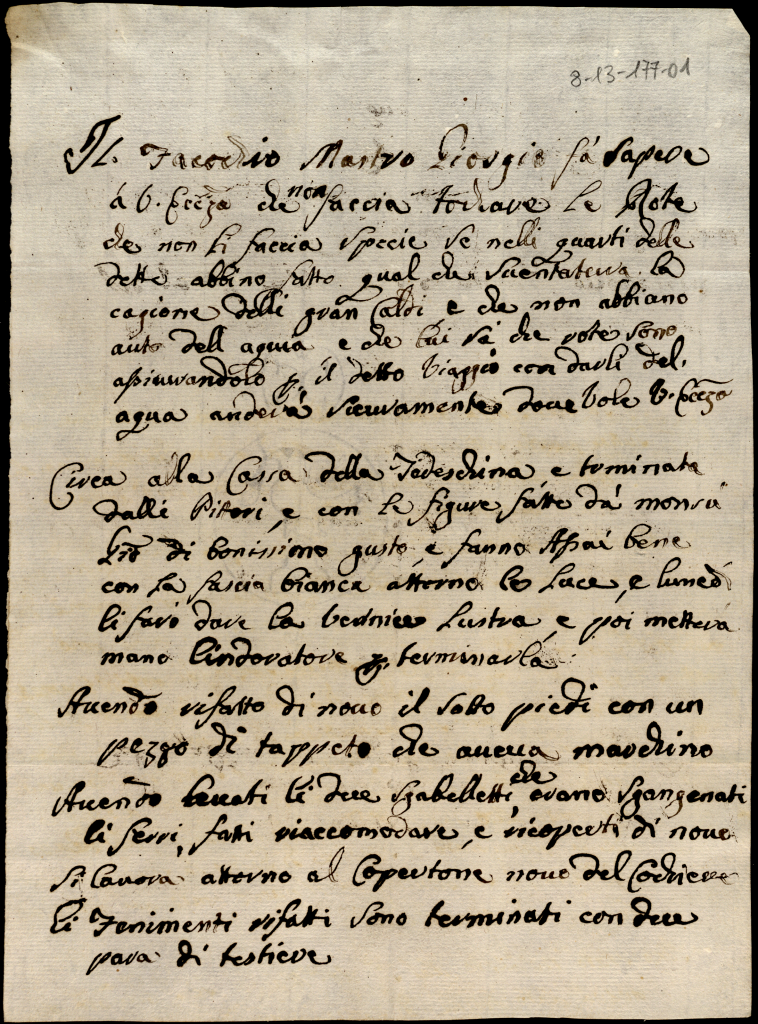 8-13-177-01
Il Facochio Mastro Giorgio fà sapere
à V. Eccza che non faccia tochare le Rote
che non li faccia specie se nelli quarti delle
dette abbino fatto qual che suentatura la
cagione delli gran Caldi, e che non abbiano
auto dell aqua e che lui sà che rote sono
assicurandolo p. il detto Viaggio con darli del,
aqua anderà sicuramente doue Vole V. Eccza
Circa alla Cassa della Tedeschina, e terminata
dalli Pitori, e con le figure fatte dà monsù
Gio di bonissimo gusto, e fanno Assai bene
con la fascia bianca attorno le Luce, e lunedì
li farò dare la Vernice Lustra, e poi metterà
mano lindoratore p. terminarla
Auendo rifatto di nouo il sotto piedi con un
pezzo di tappeto che aueua marchino
Auendo leuati li due sgabelletti, che erano sgangenati
li ferri, fatti riaccomodare, e ricoperti di nouo
si lauora attorno al Copertone nouo del Cochiere
li Fenimenti rifatti sono terminati con due
para di testiere